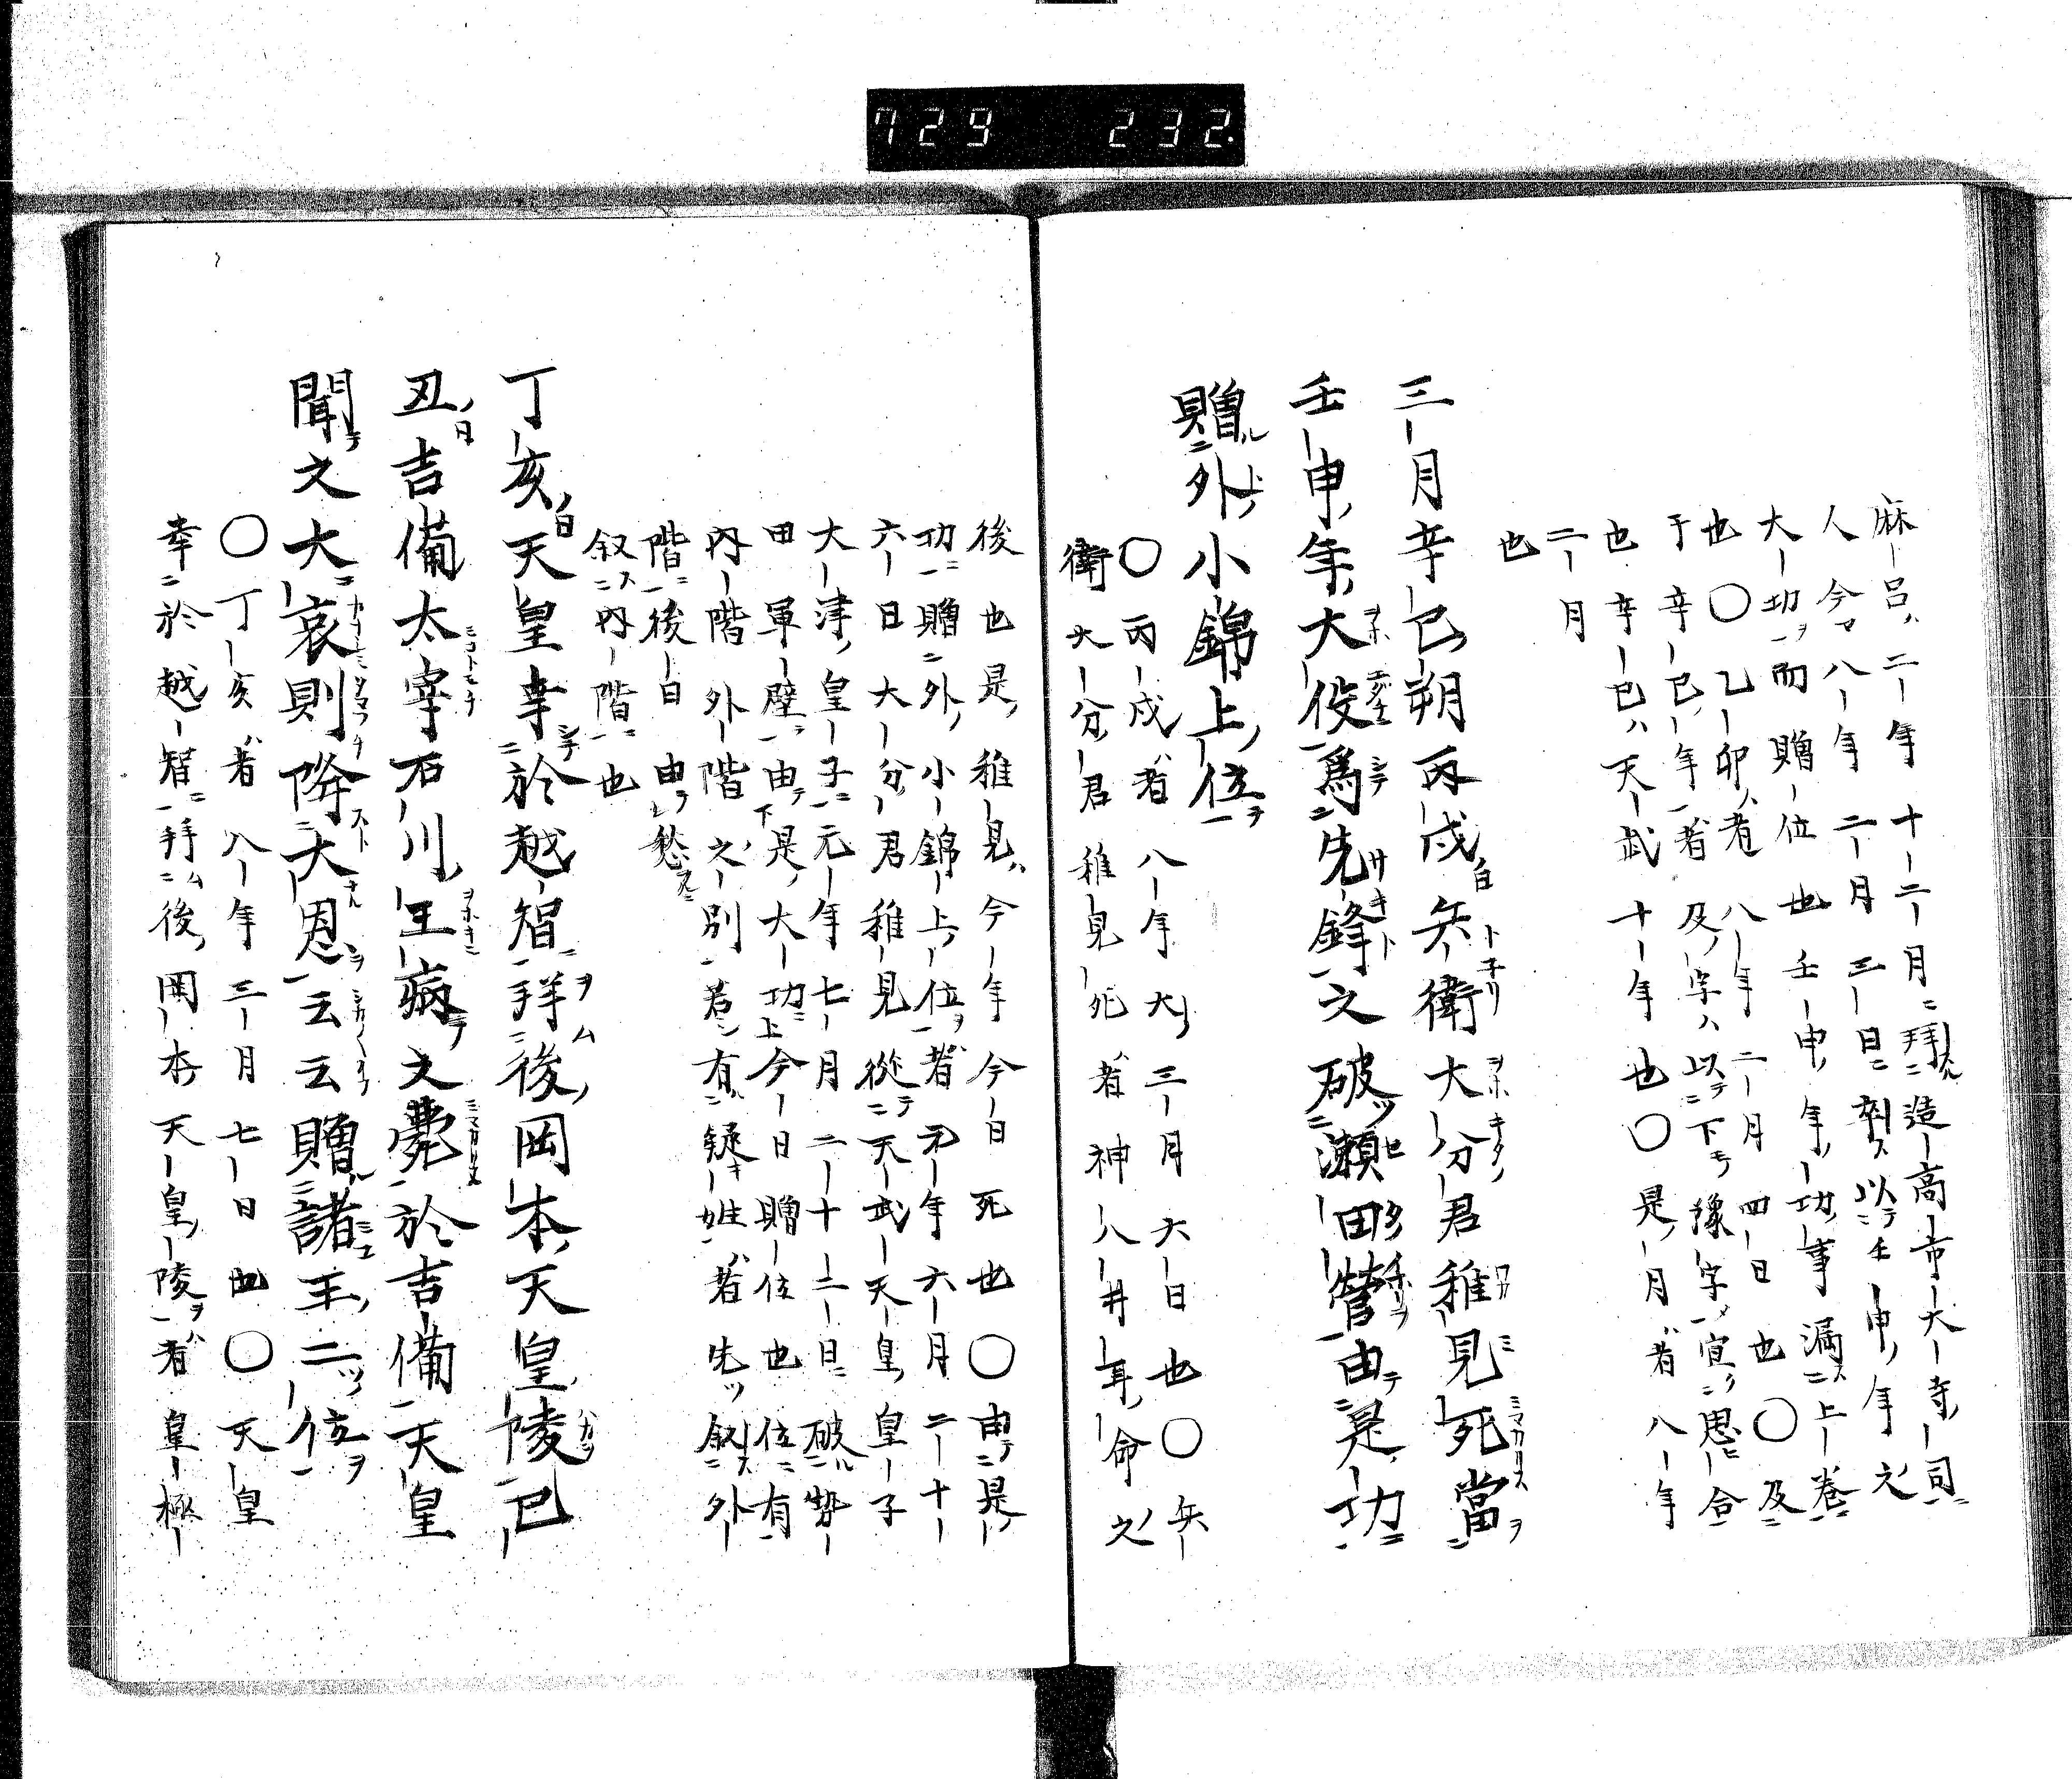 729 232
麻呂二年十二月拜造高市大寺司
人今八年二月三日卒以壬申年之
大功而贈位也壬申年功事漏上巻
也〇乙卯者八年二月四日也〇及
于辛巳年者及字以下豫字宜思合
也辛巳天武十年也〇是月者八年
二月
也
三月辛巳朔丙戌兵衛大分君稚見死當
壬申年大役爲先鋒之破瀬田營由是功
贈外小錦上位
〇丙戌者八年大三月六日也〇兵
衛大分君稚見死者神八井耳命之
後也是稚見今年今日死也〇由是
功贈外小錦上位者元年六月二十
六日大分君稚見從天武天皇皇子
大津皇子元年七月二十二日破勢
田軍壁由是大功今日贈位也位有
内階外階之別若有疑姓者先叙外
階後日由愁
叙内階也
丁亥天皇幸於越智拜後岡本天皇陵己
丑吉備太宰石川王病之薨於吉備天皇
聞之大哀則降大恩云云贈諸王二位
〇丁亥者八年三月七日也〇天皇
幸於越智拜後岡本天皇陵者皇極